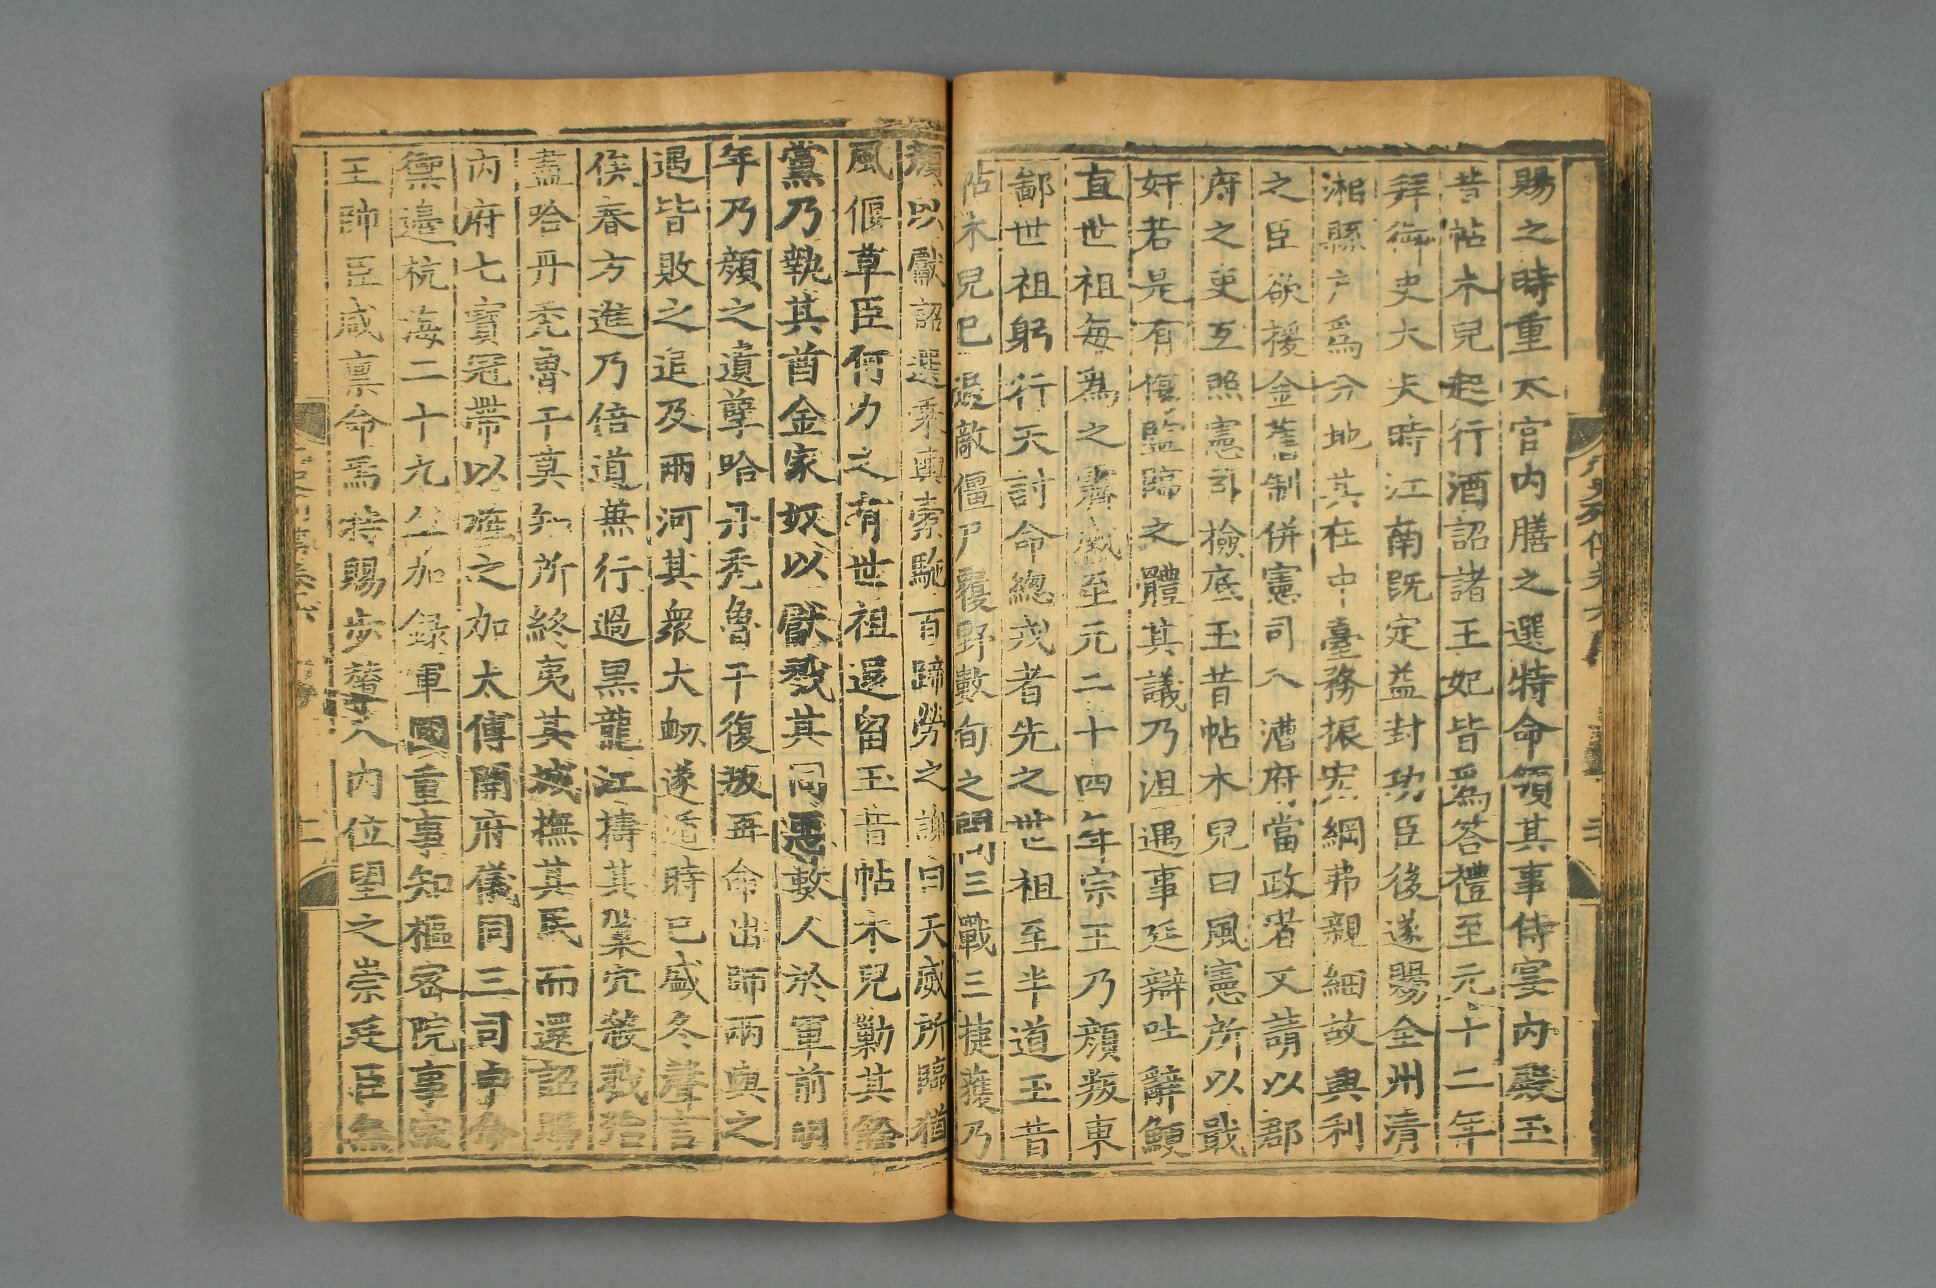 賜之時重太官內膳之選特命領其事侍宴內殿玉
昔帖木兒起行酒詔諸王妃皆爲答禮至元十二年
拜御史大夫時江南旣定益封功臣後遂賜全州清
湘縣戶爲分地其在中臺務振宏綱弗親細故興利
之臣欲援金舊制併憲司入漕府當政者又請以郡
府之吏互照憲司檢底玉昔帖木兒曰風憲所以戢
奸若是有傷監臨之體其議乃沮遇事廷辯吐辭鯁
直世祖每爲之霽威至元二十四年宗王乃顏叛東
鄙世祖躬行天討命總戎者先之世祖至半道玉昔
帖木兒已退敵僵尸覆野數旬之間三戰三捷獲乃
顏以獻詔選乘輿橐駞百蹄勞之謝曰天威所臨猶
風偃草臣何力之有世祖還留玉昔帖木兒勦其餘
黨乃執其酋金家奴以獻戮其同惡數人於軍前明
年乃顏之遺孽哈丹禿魯干復叛再命出師兩與之
遇皆敗之追及兩河其衆大衂遂遁時已盛冬聲言
俟春方進乃倍道兼行過黑龍江擣其巢穴殺戮殆
盡哈丹禿魯干莫知所終夷其城撫其民而還詔賜
內府七寶冠帶以旌之加太傅開府儀同三司申命
禦邊杭海二十九年加錄軍國重事知樞密院事宗
王帥臣咸稟命焉特賜步輦入內位望之崇廷臣無